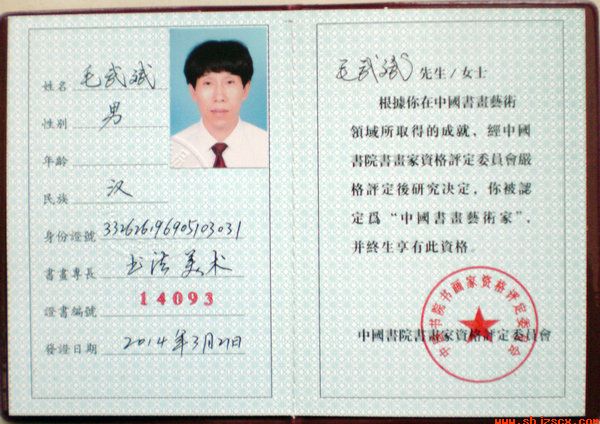 姓名 毛武斌
性别 男
年龄
民族 汉
身份證號 332626196905103031
書畫專長 书法美术
證書編號 14093
發證日期 2014年3月21日
毛武斌 先生/女士
根據你在中國書畫藝術
領域所取得的成就、經中國
書院書畫家資格評定委員會嚴
格評定後研究决定，你被認
定爲“中國書畫藝術家”，
并終生享有此資格。
中國書院書畫家資格評定委員會
中國书院书画家资格评定委员会
www.sbjzscx.com